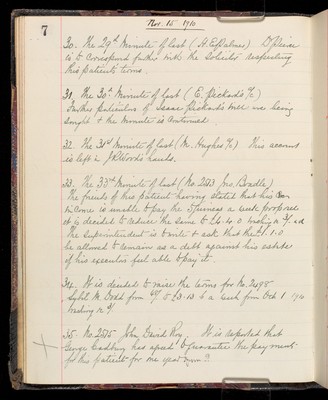 7
Nov. 15 1910
30. The 29th Minute of last (H. E. Palmer) Dr Pierce
is to correspond further with the Solicitor respecting
this patient's terms.
31. The 30th Minute of last (E. Packard's a/c)
Further particulars of Isaac Packard's will are being
sought & the Minute is continued
32. The 31st Minute of last (M. Hughes a/c) This account
is left in J. R. Wood's hands.
33. The 33rd Minute of last (No. 2513 Jno. Bradle)
The friends of this patient having stated that his
income is unable to pay the 5 guineas a week proposed
it is decided to reduce the same to £4. 4. 0
The Superintendent is to write & ask that the £1. 1. 0
be allowed to remain as a debt against his estate
if his executors feel able to pay it.
34. It is decided to raise the terms for No. 2498
Sybil M. Dodd from to a week from Oct 1 1910
35. No. 2575 John David Roy. It is reported that
George Cadbury has agreed to guarantee the payment
for this patient for one year from